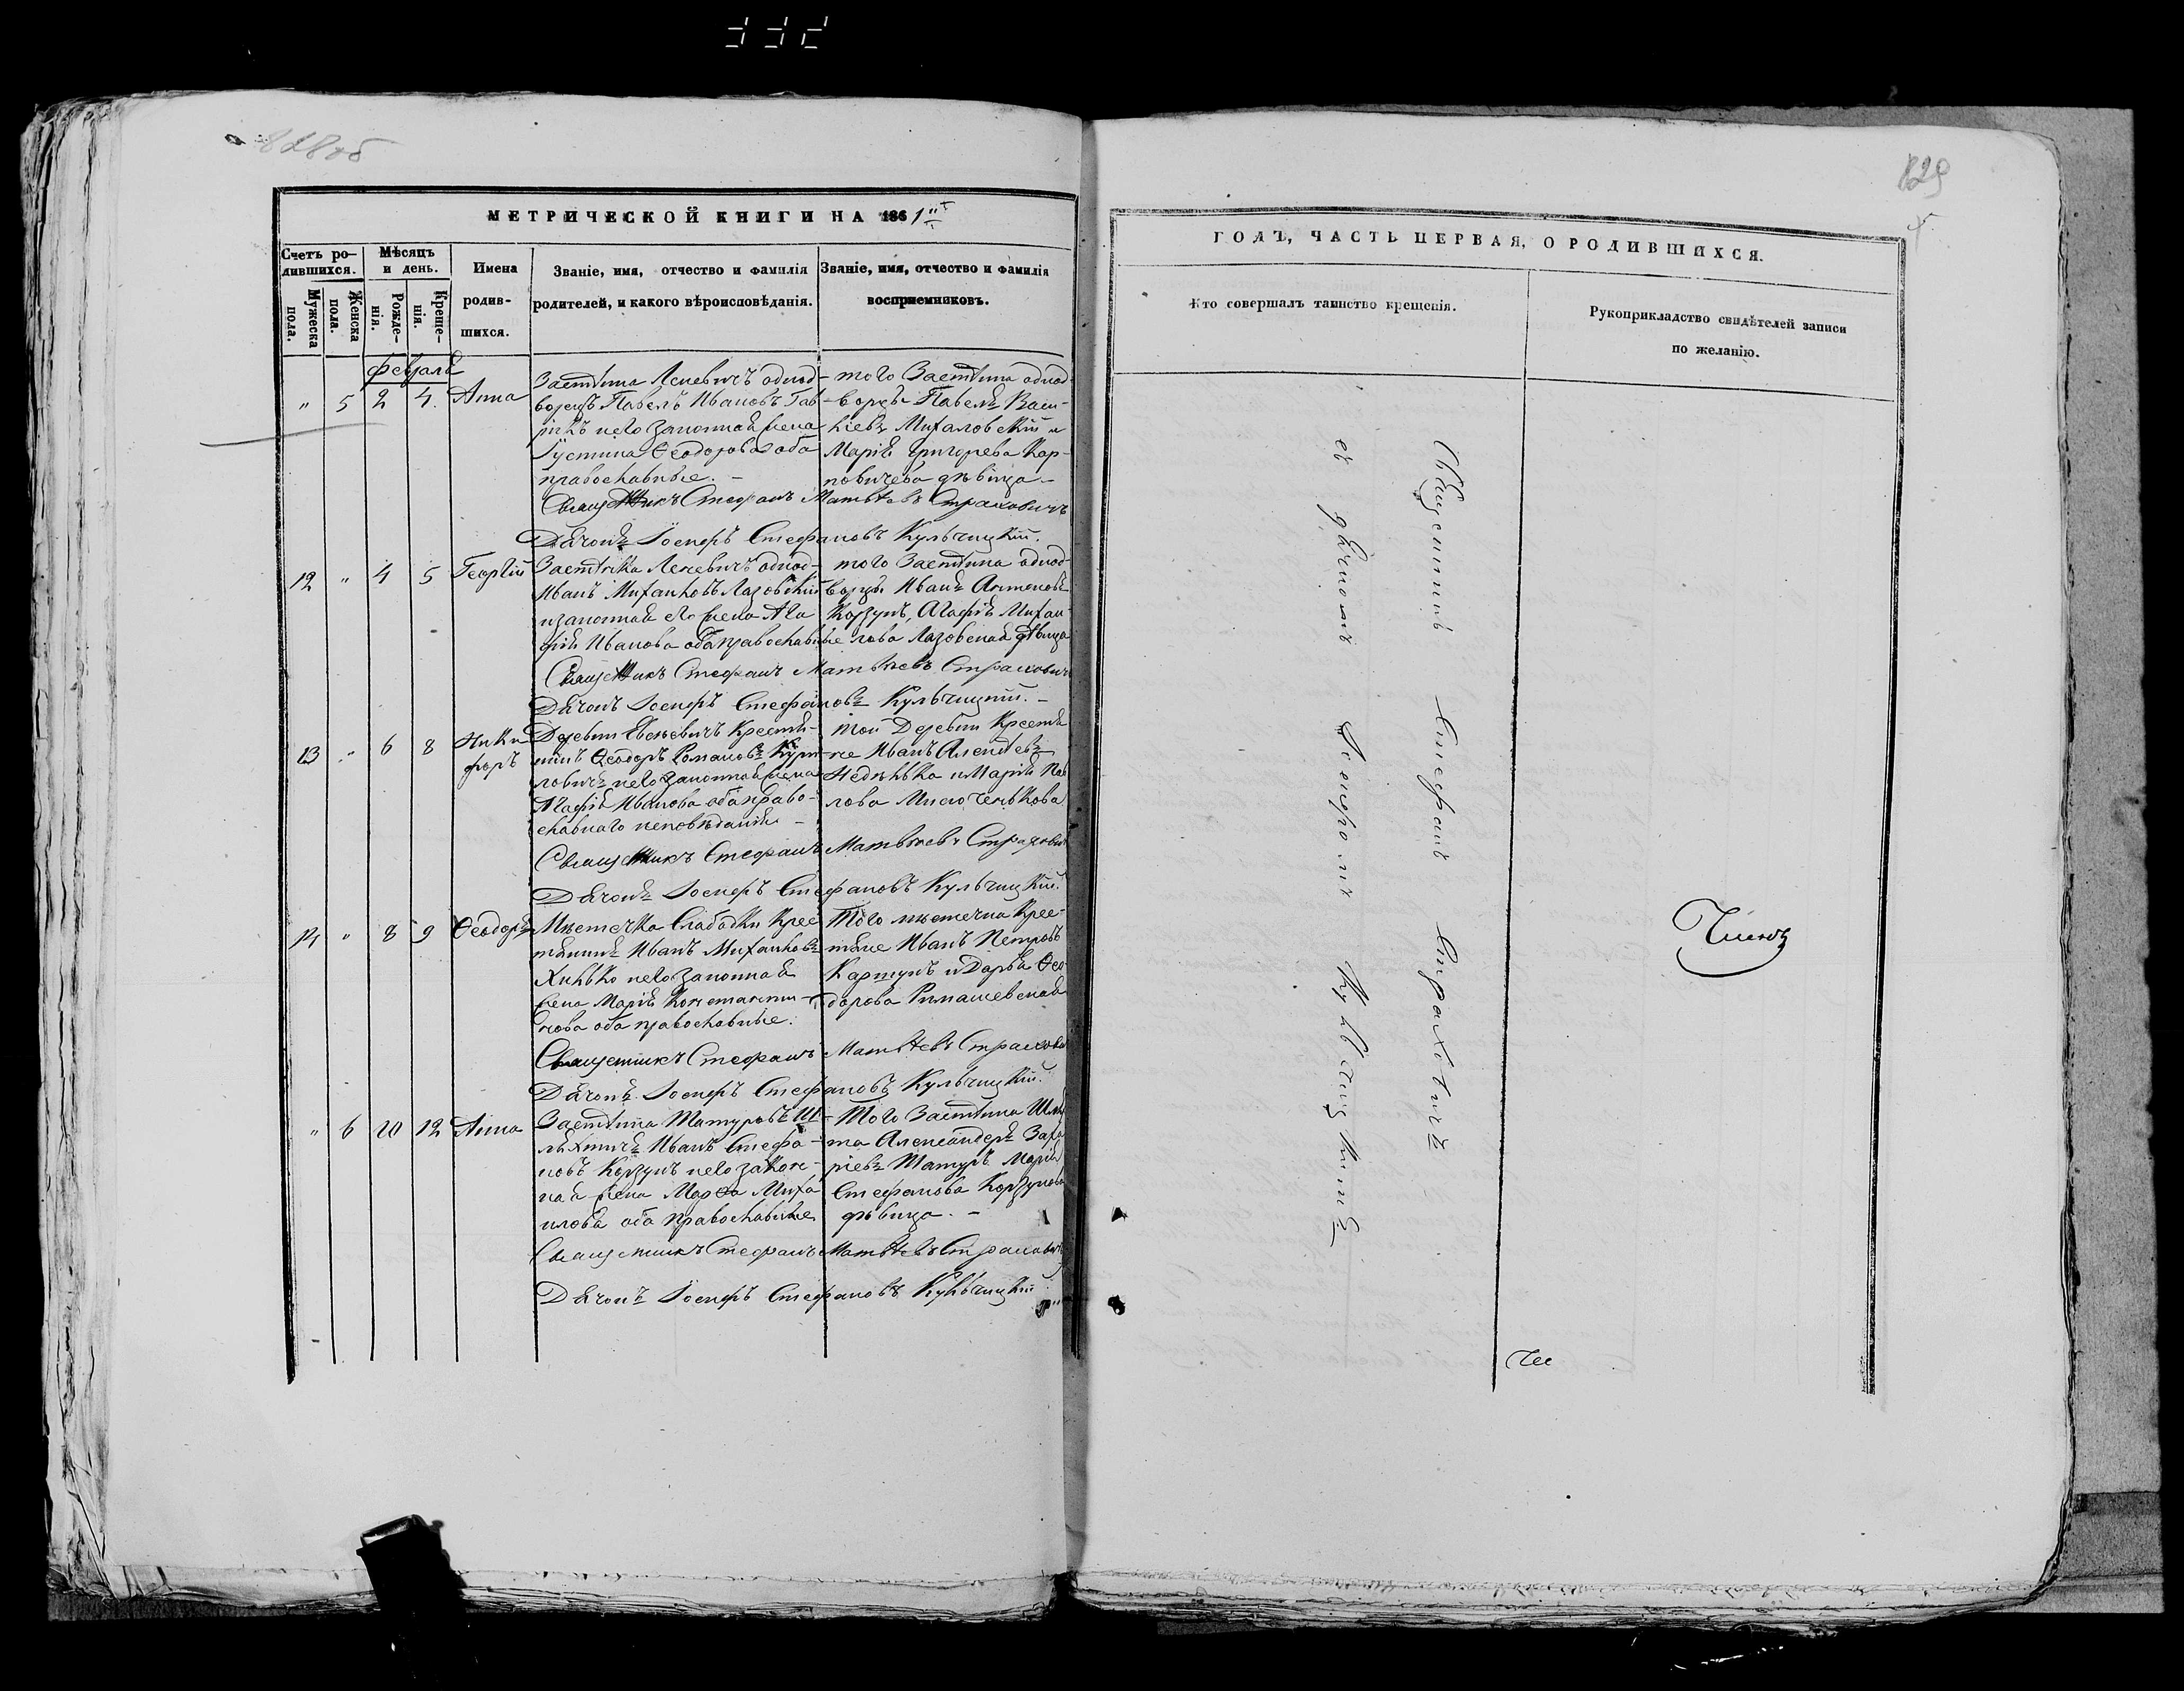 828об
829
МЕТРИЧЕСКОЙ КНИГИ НА 1861
Счетъ ро-
дившихся.
Мужеска пола.
Женска пола.
Мѣсяцъ
и день.
Рожде-
нія.
Креще-
нія.
Имена
родив-
шихся.
Званіе, имя, отчество и фамилія
родителей, и какого вѣроисповѣданія.
Званіе, имя, отчество и фамилія
восприемниковъ.
февраль
" 5 2 4. Анна
Застѣнка Лсневичъ однод-
ворецъ Павелъ Ивановъ Гав
и его законная жена
Іустина Ѳеодорова оба
православные. -
того Застѣнка однод
ворцы Павелъ Васи-
ліевъ Михаловскій и
Марія Григорева Кар-
повичева дѣвица -
Священникъ Стефанъ Матвѣевъ Страховичъ
Дьячокъ Іосифъ Стефановъ Кульчицкій.
12 " 4 5 Георгій
Застѣнка Лсневичъ однод-
Иванъ Михайловъ Лазовскій
и законная его жена Ага
фія Иванова оба православные
того Застѣнка однод
ворцы Иванъ Антоновъ
Корзунъ, Агафія Михаи-
лова Лазовская дѣвица
Священникъ Стефанъ Матвѣевъ Страхович
Дьячокъ Іосифъ Стефановъ Кульчицкій. -
13 " 6 8 Ники
форъ
Деревни Евсевичъ Крестья-
нинъ Ѳеодоръ Романовъ Кури
ловичъ и его законная жена
Агафія Иванова оба право-
славнаго исповѣданія -
той Деревни Крестья
не Иванъ Алексѣевъ
Недѣлька и Марія Пав
лова
Священникъ Стефанъ Матвѣевъ Страхович
Дьячокъ Іосифъ Стефановъ Кульчицкій.
14 " 8 9 Ѳеодоръ
Мѣстечка Слабодки Крес
тьянинъ Иванъ Михайловъ
Хилько и его законная
жена Марія Константи-
нова оба православные.
Того мѣстечка Крес-
тьяне Иванъ Петровъ
Картунъ и Дарья Ѳео
дорова Римашевская
Священникъ Стефанъ Матвѣевъ Страхович
Дьячокъ Іосифъ Стефановъ Кульчицкій.
" 6 10 12 Анна
Застѣнка Татуровъ Ш-
ляхтичъ Иванъ Стефа-
новъ Корзунъ и его закон-
ная жена Марѳа Миха
илова оба православные
Того Застѣнка Шлях
та Александеръ Заха
ріевъ Татуръ Марія
Стефанова Корзунова
дѣвица. -
Священникъ Стефанъ Матвѣевъ Страхович
Дьячокъ Іосифъ Стефановъ Кульчицкій
ГОДЪ, ЧАСТЬ ПЕРВАЯ, О РОДИВШИХСЯ.
Кто совершалъ таинство крещенія.
Рукоприкладство свидѣтелей записи
по желанію.
Священникъ Стефанъ Страховичъ
съ дьячкомъ Іосифомъ Кульчицкимъ